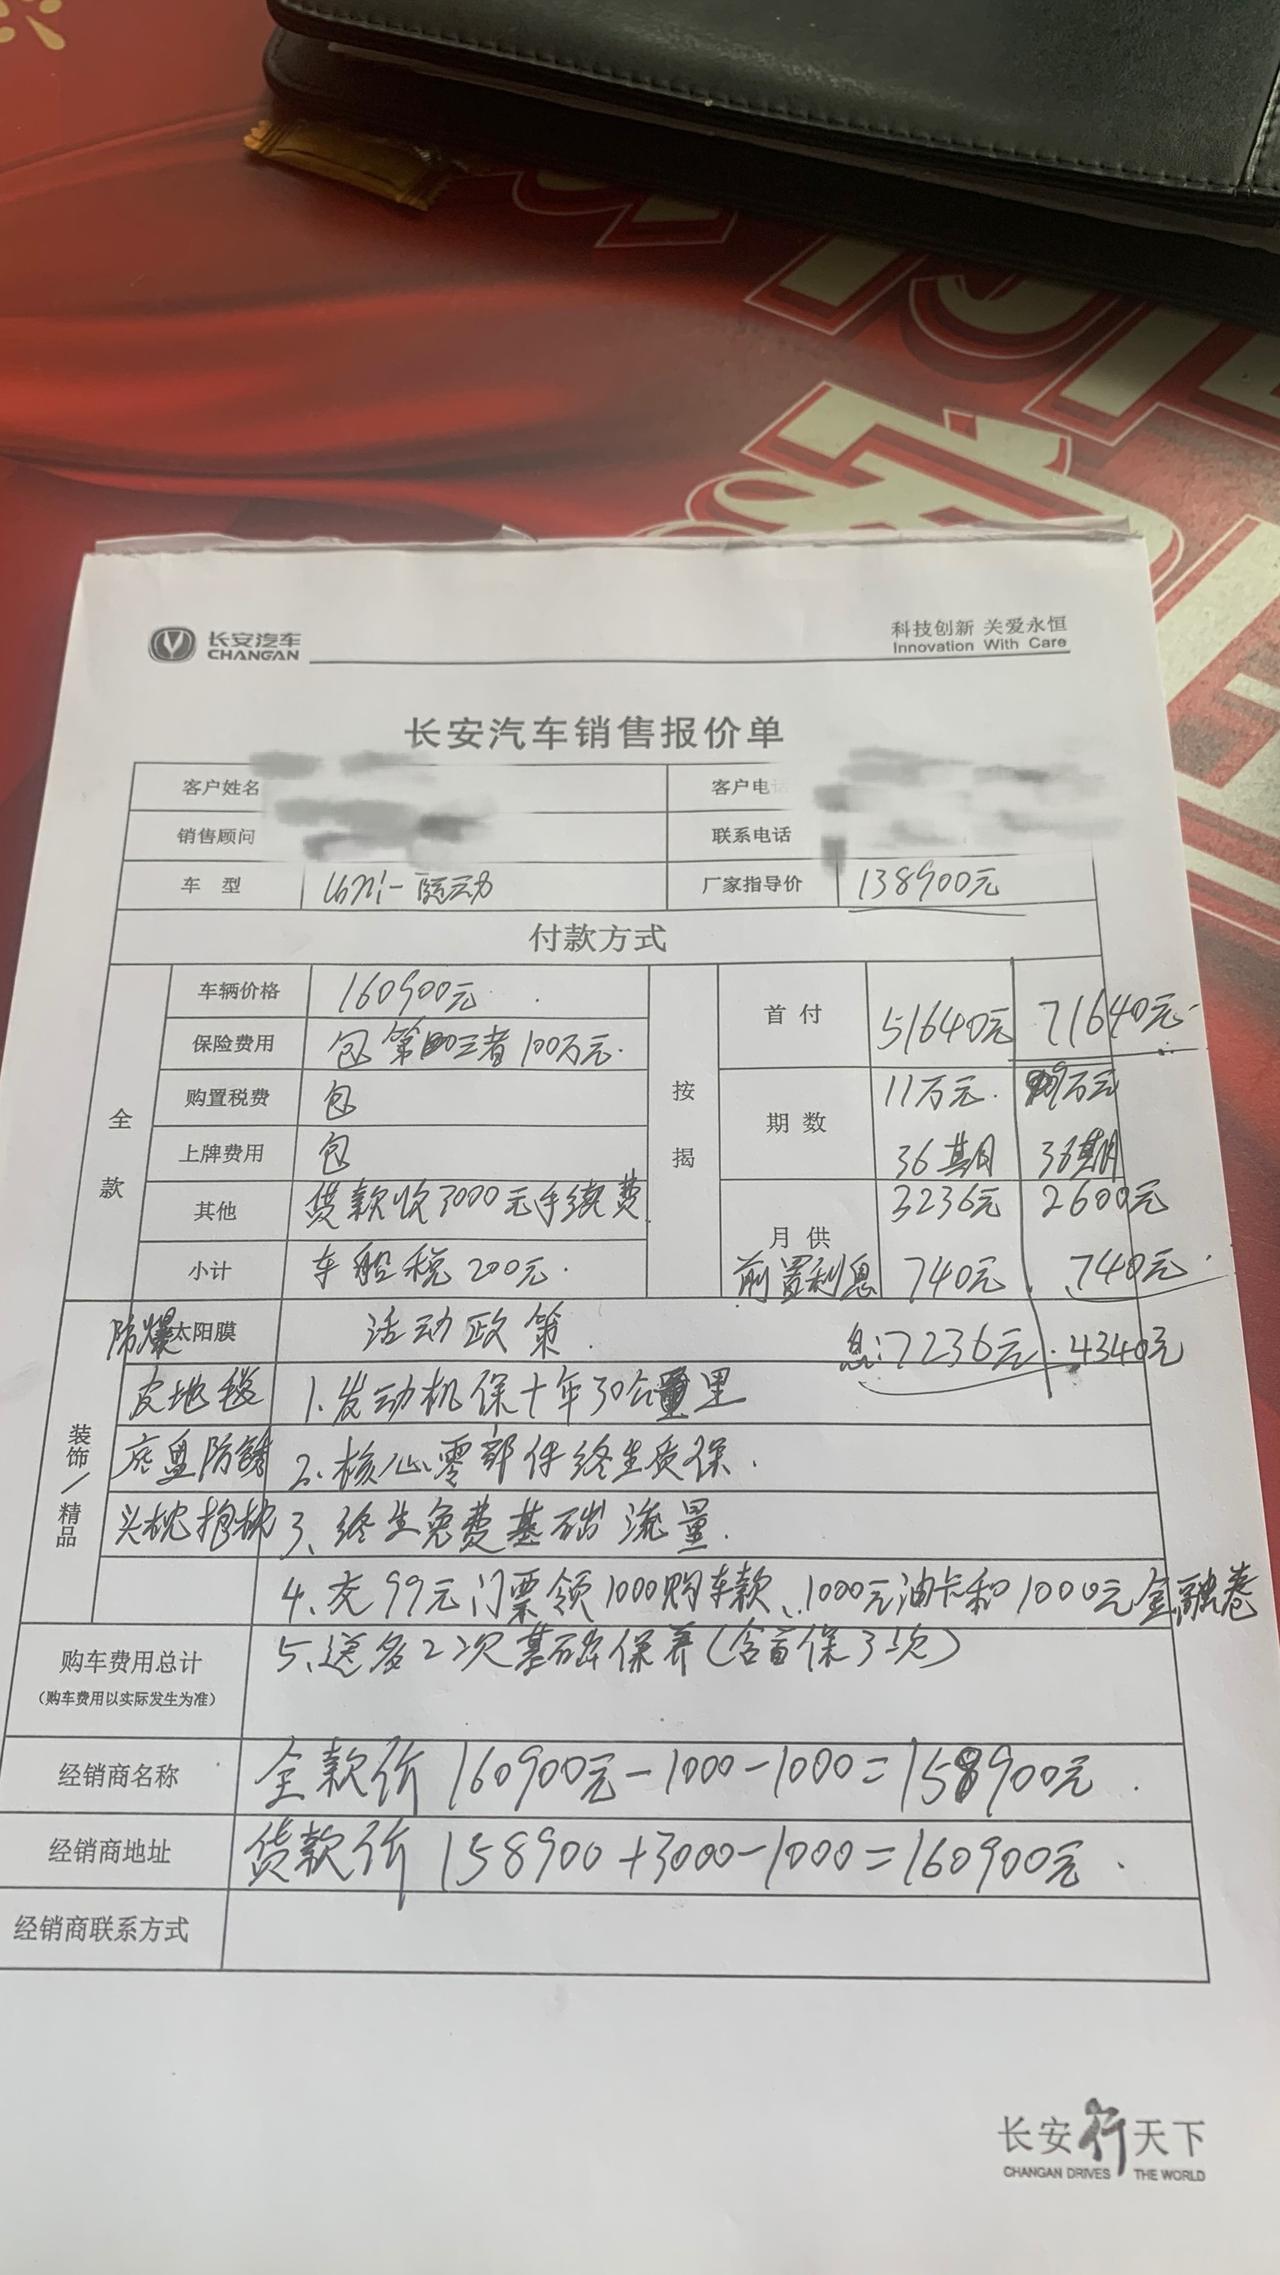 长安汽车
CHANGAN
科技创新 关爱永恒
Innovation With Care
长安汽车销售报价单
客户姓名
客户电话
销售顾问
联系电话
车 型 Uni-
厂家指导价 138900元
付款方式
全款
车辆价格 160900元
保险费用 包 第三者100万元
购置税费 包
上牌费用 包
其他 贷款收3000元手续费
小计 车船税200元
按揭
首付 51640元 71640元
期数 11万元 9万元
36期 36期
月供 3236元 2600元
前置利息 740元 740元
息:7236元 4340元
装饰/精品
防爆太阳膜 活动政策
皮地毯 1、发动机保十年30公里
底盘防锈 2、核心零部件终生质保
头枕抱枕 3、终生免费基础流量
4、交99元门票领1000购车款、1000元油卡和1000元金融卷
购车费用总计
(购车费用以实际发生为准)
5、送多2次基础保养(含首保3次)
经销商名称 全款价 160900元-1000-1000=158900元
经销商地址 贷款价 158900+3000-1000=160900元
经销商联系方式
长安行天下
CHANGAN DRIVES THE WORLD